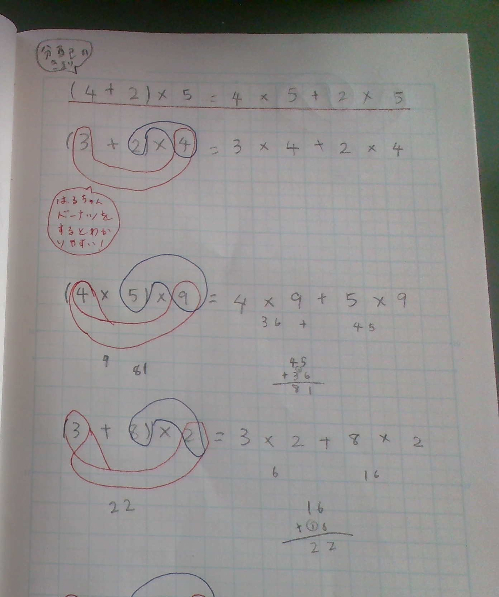 分配の
きまり
(4+2)×5=4×5+2×5
(3+2)×4=3×4+2×4
はるちゃん
ドーナツを
するとわか
りやすい!
(4×5)×9=4×9+5×9
36 + 45
9 81
45
+36
81
(3+8)×2=3×2+8×2
6 16
22
16
22